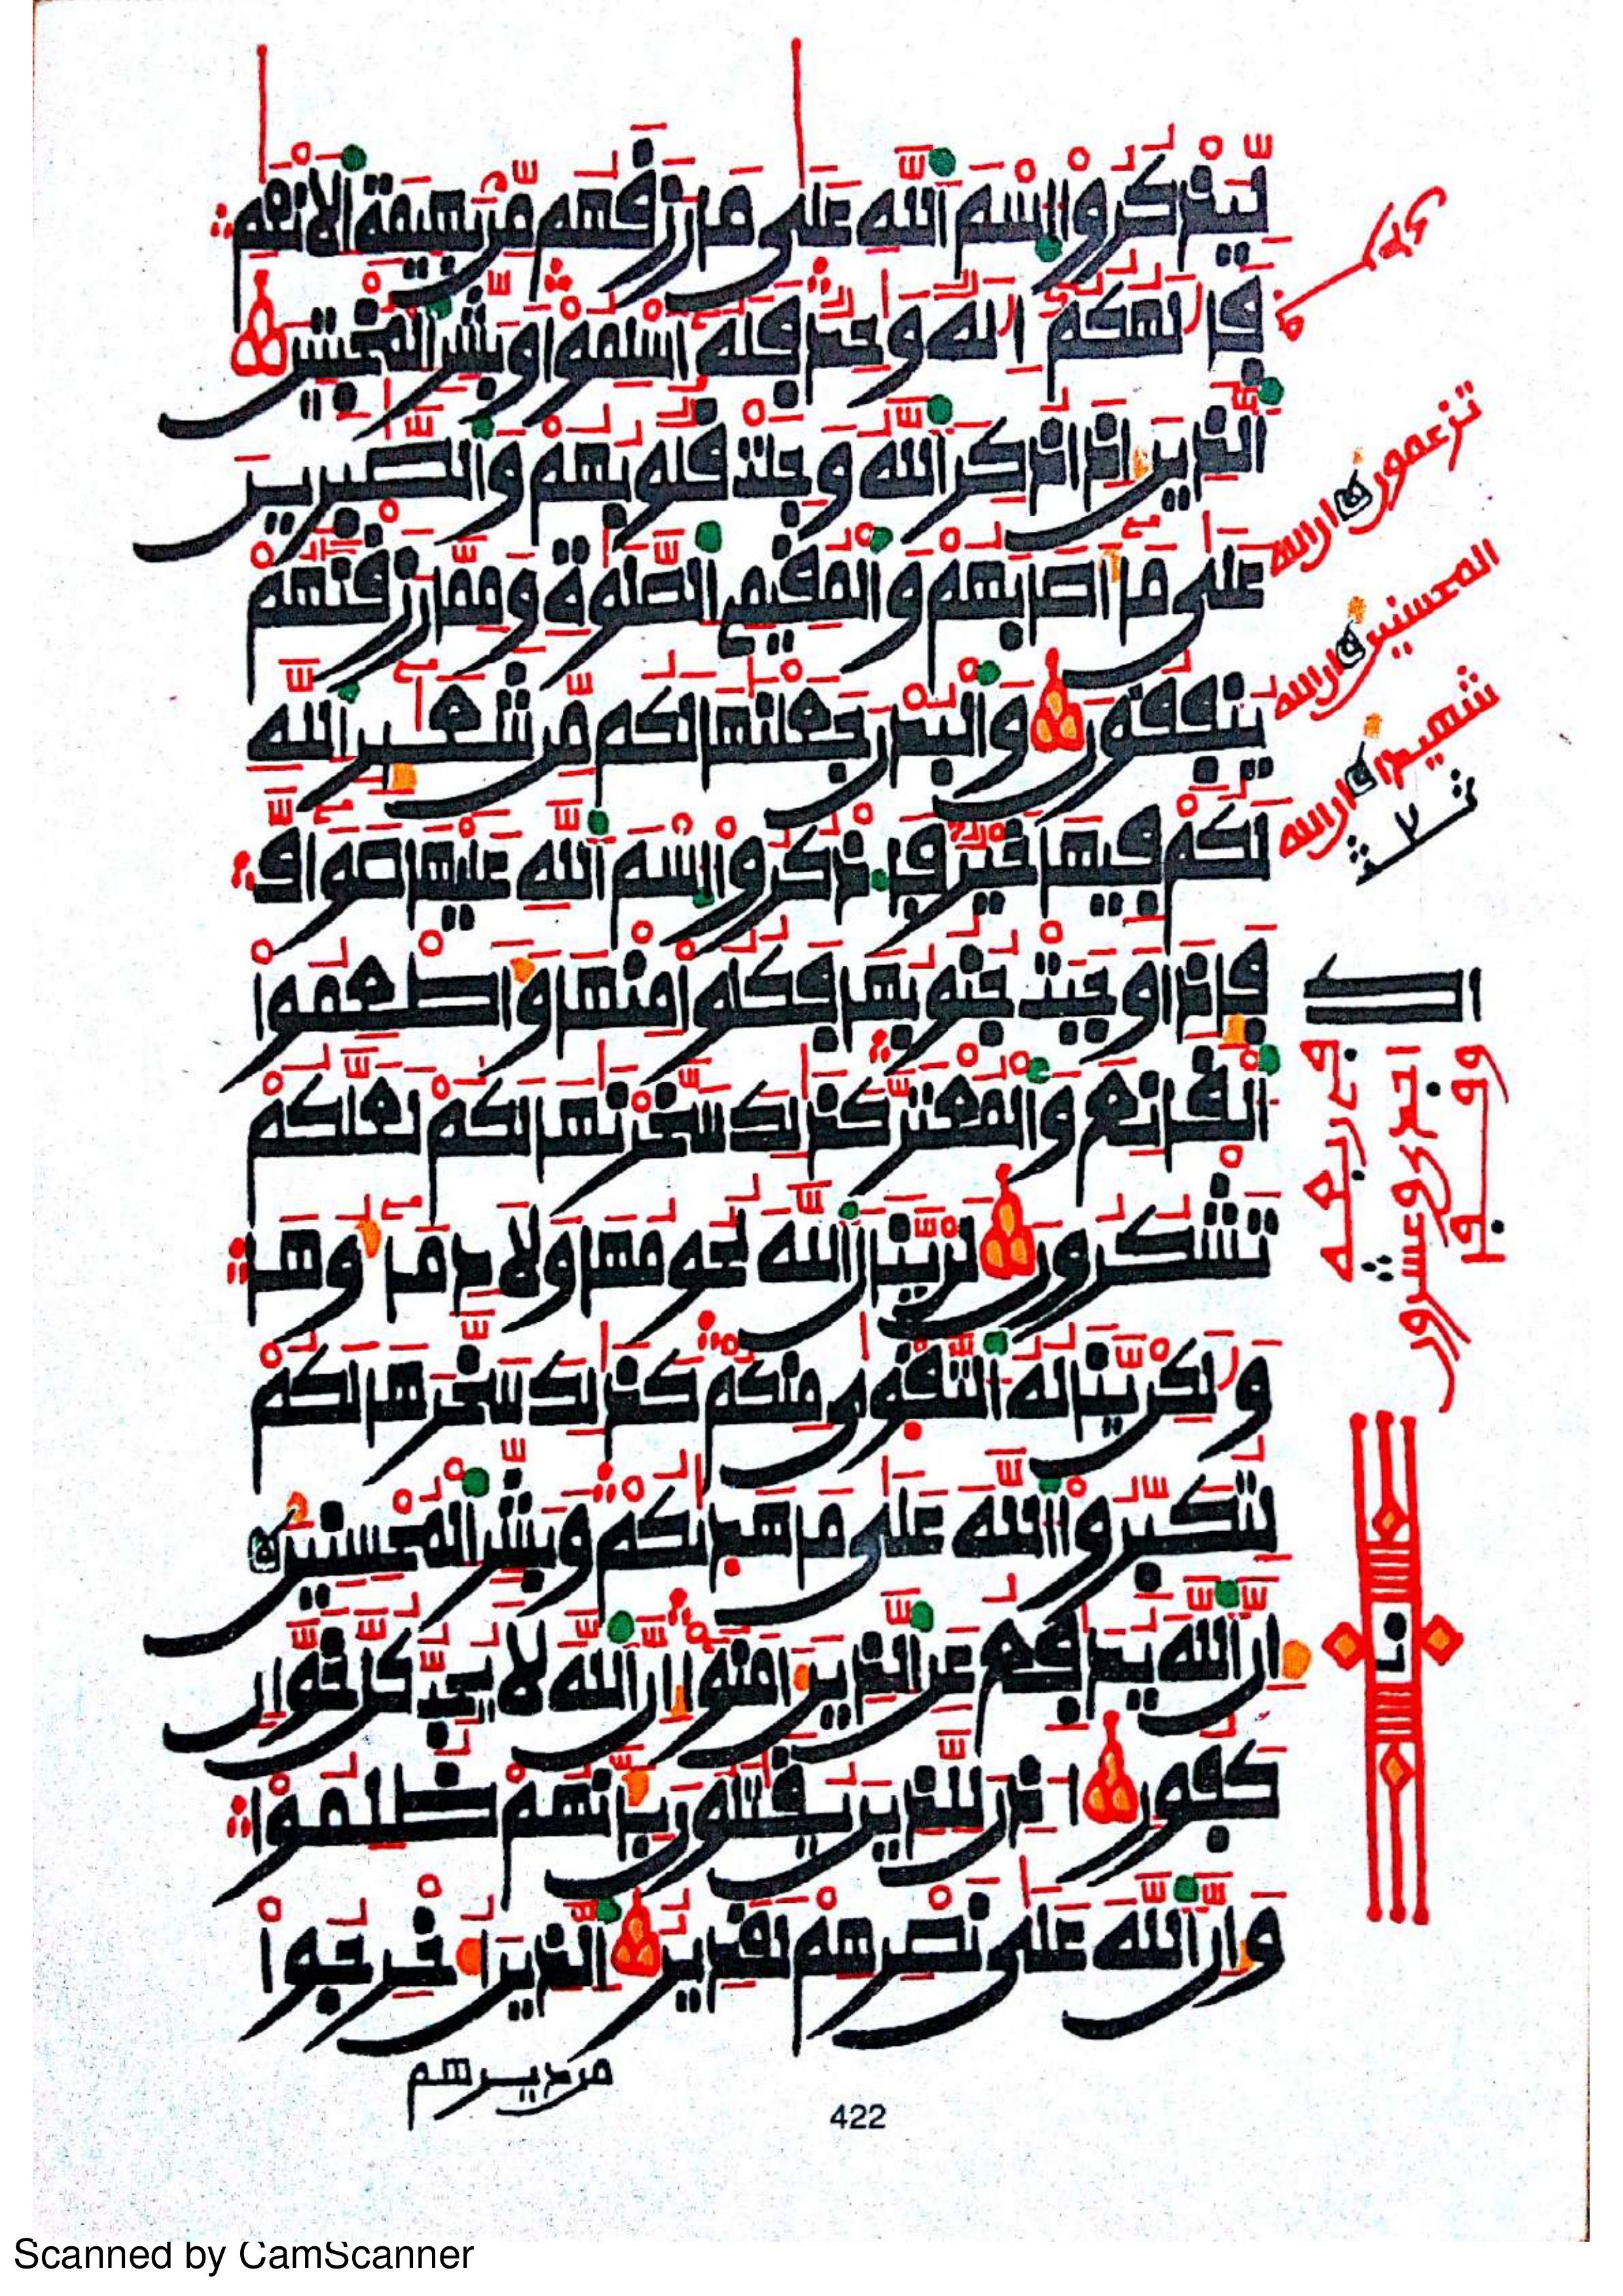 لِّيَذْكُرُوا۟ اُ۬سْمَ اَ۬للَّهِ عَلَىٰ مَا رَزَقَهُم مِّنۢ بَهِيمَةِ اِ۬لَانْعَٰمِ
فَإِلَٰهُكُمُۥٓ إِلَٰهٌ وَٰحِدٌ فَلَهُۥٓ أَسْلِمُوا۟ وَبَشِّرِ اِ۬لْمُخْبِتِينَ
اَ۬لذِينَ إِذَا ذُكِرَ اَ۬للَّهُ وَجِلَتْ قُلُوبُهُمْ وَالصَّٰبِرِينَ
عَلَىٰ مَآ أَصَابَهُمْ وَالْمُقِيمِے اِ۬لصَّلَوٰةِ وَمِمَّا رَزَقْنَٰهُمْ
يُنفِقُونَ وَالْبُدْنَ جَعَلْنَٰهَا لَكُم مِّن شَعَٰٓئِرِ اِ۬للَّهِ
لَكُمْ فِيهَا خَيْرٌ فَاذْكُرُوا۟ اُ۬سْمَ اَ۬للَّهِ عَلَيْهَا صَوَآفَّ
فَإِذَا وَجَبَتْ جُنُوبُهَا فَكُلُوا۟ مِنْهَا وَأَطْعِمُوا۟
اُ۬لْقَانِعَ وَالْمُعْتَرَّ كَذَٰلِكَ سَخَّرْنَٰهَا لَكُمْ لَعَلَّكُمْ
تَشْكُرُونَ لَنْ يَّنَالَ اَ۬للَّهَ لُحُومُهَا وَلَا دِمَآؤُهَا
وَلَٰكِنْ يَّنَالُهُ اُ۬لتَّقْوَىٰ مِنكُمْ كَذَٰلِكَ سَخَّرَهَا لَكُمْ
لِتُكَبِّرُوا۟ اُ۬للَّهَ عَلَىٰ مَا هَدَىٰكُمْ وَبَشِّرِ اِ۬لْمُحْسِنِينَ
إِنَّ اَ۬للَّهَ يُدَٰفِعُ عَنِ اِ۬لذِينَ ءَامَنُوٓا۟ إِنَّ اَ۬للَّهَ لَا يُحِبُّ كُلَّ خَوَّانٍ
كَفُورٍ اُذِنَ لِلذِينَ يُقَٰتَلُونَ بِأَنَّهُمْ ظُلِمُوا۟
وَإِنَّ اَ۬للَّهَ عَلَىٰ نَصْرِهِمْ لَقَدِيرٌ اِ۬لذِينَ أُخْرِجُوا۟
من ديرهم
تزعمون ان الله
المحسنين ان الله
شهيدا ان الله
422
Scanned by CamScanner